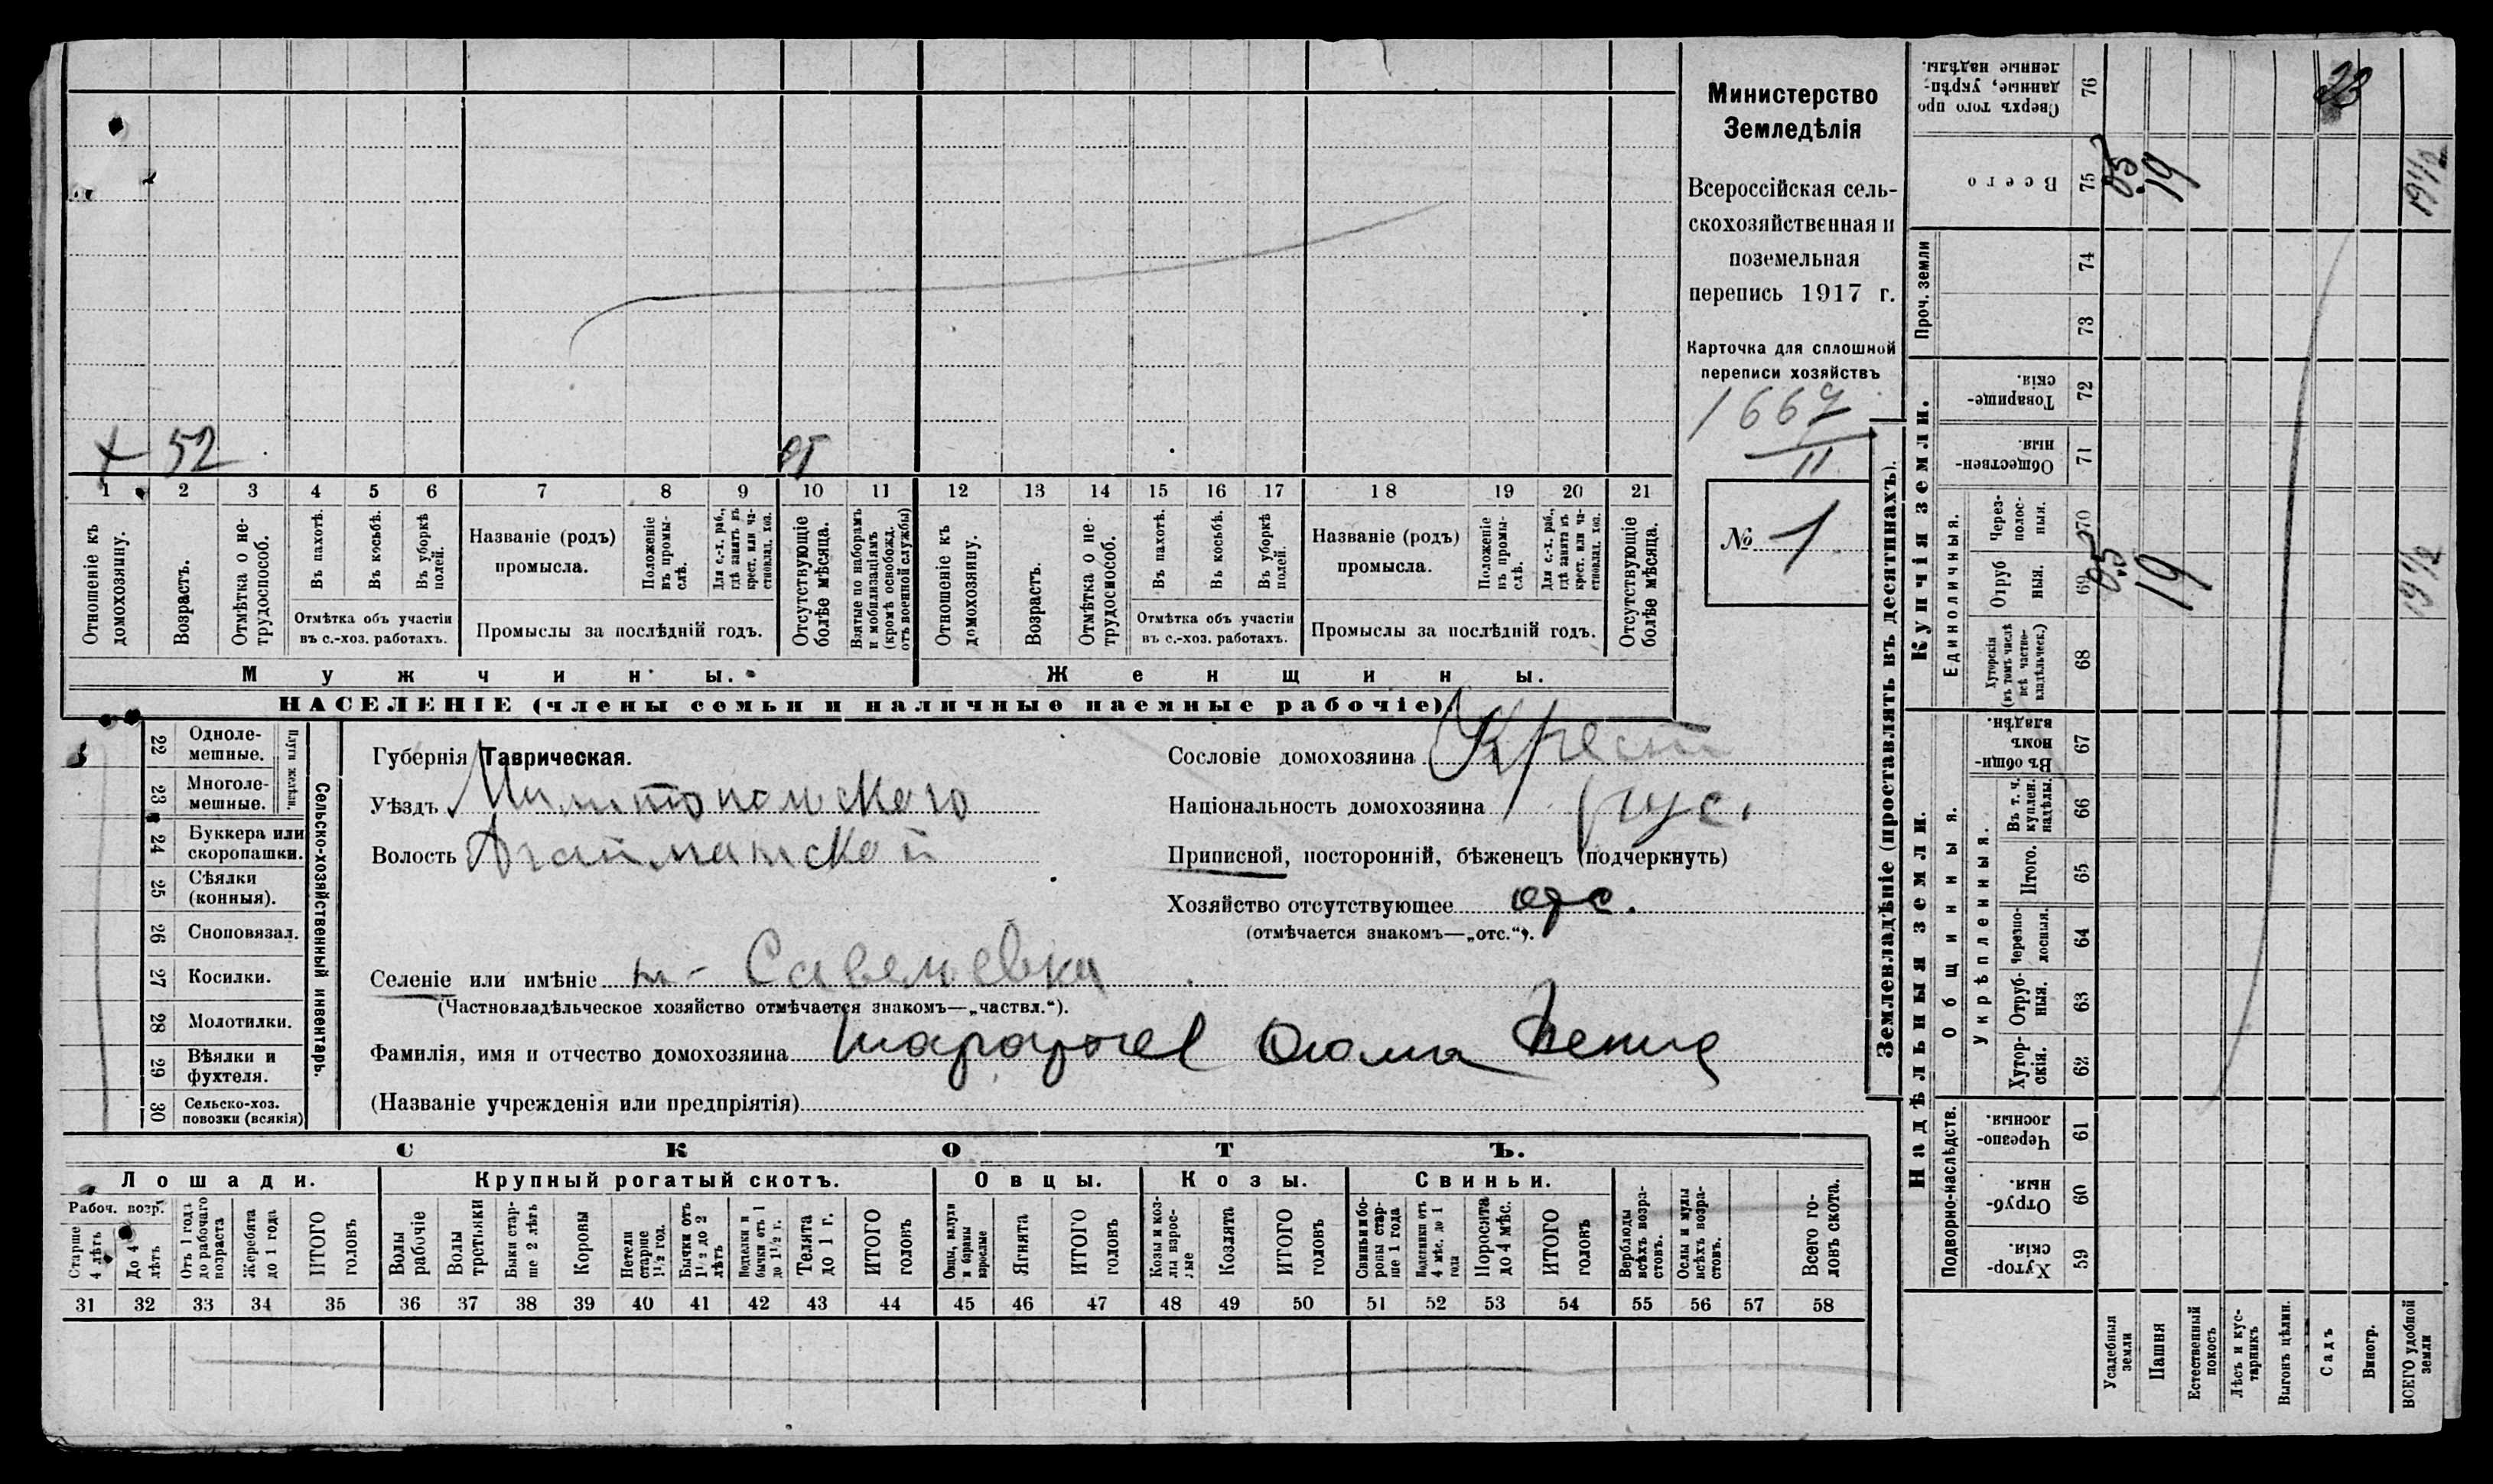 Министерство
Земледѣлія
Всероссійская сель-
скохозяйственная и
поземельная
перепись 1917 г.
Карточка для сплошной
переписи хозяйствъ
1667
II
№ 1
× 52 от
1 2 3 4 5 6 7 8 9 10 11 12 13 14 15 16 17 18 19 20 21
Отношеніе къ домохозяину.
Возрастъ.
Отмѣтка о не-трудоспособ.
Въ пахотѣ.
Въ косьбѣ.
Въ уборкѣ полей.
Отмѣтка объ участіи
въ с.-хоз. работахъ.
Названіе (родъ)
промысла.
Положеніе въ промы-слѣ.
Для с.-х. раб., гдѣ занятъ въ крест. или ча-стновлад. хоз.
Промыслы за послѣдній годъ.
Отсутствующіе болѣе мѣсяца.
Взятые по наборамъ и мобилизаціямъ (кромѣ освобожд. отъ военной службы)
Отношеніе къ домохозяину.
Возрастъ.
Отмѣтка о не-трудоспособ.
Въ пахотѣ.
Въ косьбѣ.
Въ уборкѣ полей.
Отмѣтка объ участіи
въ с.-хоз. работахъ.
Названіе (родъ)
промысла.
Положеніе въ промы-слѣ.
Для с.-х. раб., гдѣ занята въ крест. или ча-стновлад. хоз.
Промыслы за послѣдній годъ.
Отсутствующіе болѣе мѣсяца.
Мужчины.
Женщины.
НАСЕЛЕНІЕ (члены семьи и наличные наемные рабочіе).
Сельско-хозяйственный инвентарь.
Плуги желѣзн.
22 Одноле-мешные.
23 Многоле-мешные.
24 Буккера или скоропашки.
25 Сѣялки (конныя).
26 Сноповязал.
27 Косилки.
28 Молотилки.
29 Вѣялки и фухтеля.
30 Сельско-хоз. повозки (всякія)
Губернія Таврическая.
Уѣздъ
Волость
Селеніе или имѣніе Савельевка
(Частновладѣльческое хозяйство отмѣчается знакомъ—„частвл.“).
Фамилія, имя и отчество домохозяина
(Названіе учрежденія или предпріятія)
Сословіе домохозяина Крест
Національность домохозяина рус.
Приписной, посторонній, бѣженецъ (подчеркнуть)
Хозяйство отсутствующее
(отмѣчается знакомъ—„отс.“).
СКОТЪ.
Лошади.
Крупный рогатый скотъ.
Овцы.
Козы.
Свиньи.
Рабоч. возр.
Старше 4 лѣтъ
До 4 лѣтъ
Отъ 1 года до рабочаго возраста
Жеребята до 1 года
ИТОГО головъ
Волы рабочіе
Волы третьяки
Быки стар-ше 2 лѣтъ
Коровы
Нетели старше 1½ год.
Бычки отъ 1½ до 2 лѣтъ
Телята до 1 г.
ИТОГО головъ
Овцы, валухи и бараны взрослые
Ягнята
ИТОГО головъ
Козы и коз-лы взрос-лые
Козлята
ИТОГО головъ
Свиньи и бо-ровы стар-ше 1 года
Подсвинки отъ 4 мѣс. до 1 года
Поросята до 4 мѣс.
ИТОГО головъ
Верблюды всѣхъ возра-стовъ.
Ослы и мулы всѣхъ возра-стовъ.
Всего го-ловъ скота.
31 32 33 34 35 36 37 38 39 40 41 42 43 44 45 46 47 48 49 50 51 52 53 54 55 56 57 58
Землевладѣніе (проставлять въ десятинахъ).
Надѣльныя земли.
Подворно-наслѣдств.
Хутор-скія. 59
Отруб-ныя. 60
Черезпо-лосныя. 61
Общинныя.
Укрѣпленныя.
Хутор-скія. 62
Отруб-ныя. 63
Черезпо-лосныя. 64
Итого. 65
Въ т. ч. куплен. надѣлы. 66
Въ общин-номъ владѣн. 67
Купчія земли.
Единоличныя.
Хуторскія (въ томъ числѣ всѣ частно-владѣльческ.) 68
Отруб-ныя. 69
Через-полос-ныя. 70
Обществен-ныя. 71
Товарище-скія. 72
Проч. земли
73
74
Всего 75
Сверхъ того про-данные, укрѣп-ленные надѣлы. 76
Усадебныя земли
Пашня
Естественный покосъ
Лѣсъ и кус-тарникъ
Выгонъ цѣлин.
Садъ
Виногр.
ВСЕГО удобной земли
19
19½
19
19½
23